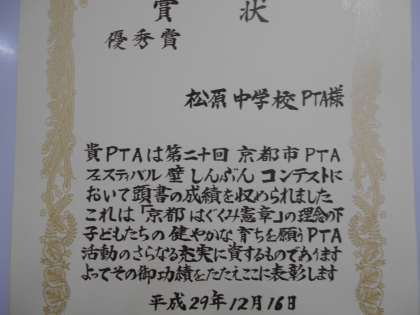 賞状
優秀賞
松原中学校PTA様
貴PTAは第二十回京都市PTA
フェスティバル壁しんぶんコンテストに
おいて頭書の成績を収められました
これは「京都はぐくみ憲章」の理念の下
子どもたちの健やかな育ちを願うPTA
活動のさらなる充実に資するものであります
よってその御功績をたたえここに表彰します
平成29年12月16日